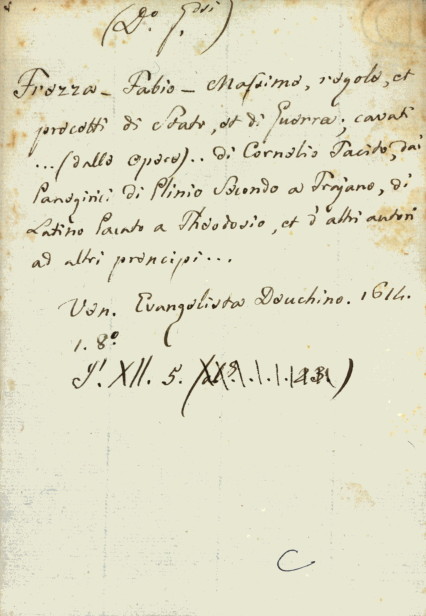 (D.º G.si)
Frezza - Fabio - Massime, regole, et
precetti di Stato, et di Guerra; cavati
...(dalle opere).. di Cornelio Tacito, dai
Panegirici di Plinio Secondo a Trajano, di
Latino Pacato a Theodosio, et d'altri autori
ad altri principi...
Ven. Evangelista Deuchino. 1614.
1. 8º
XII. 5.
C